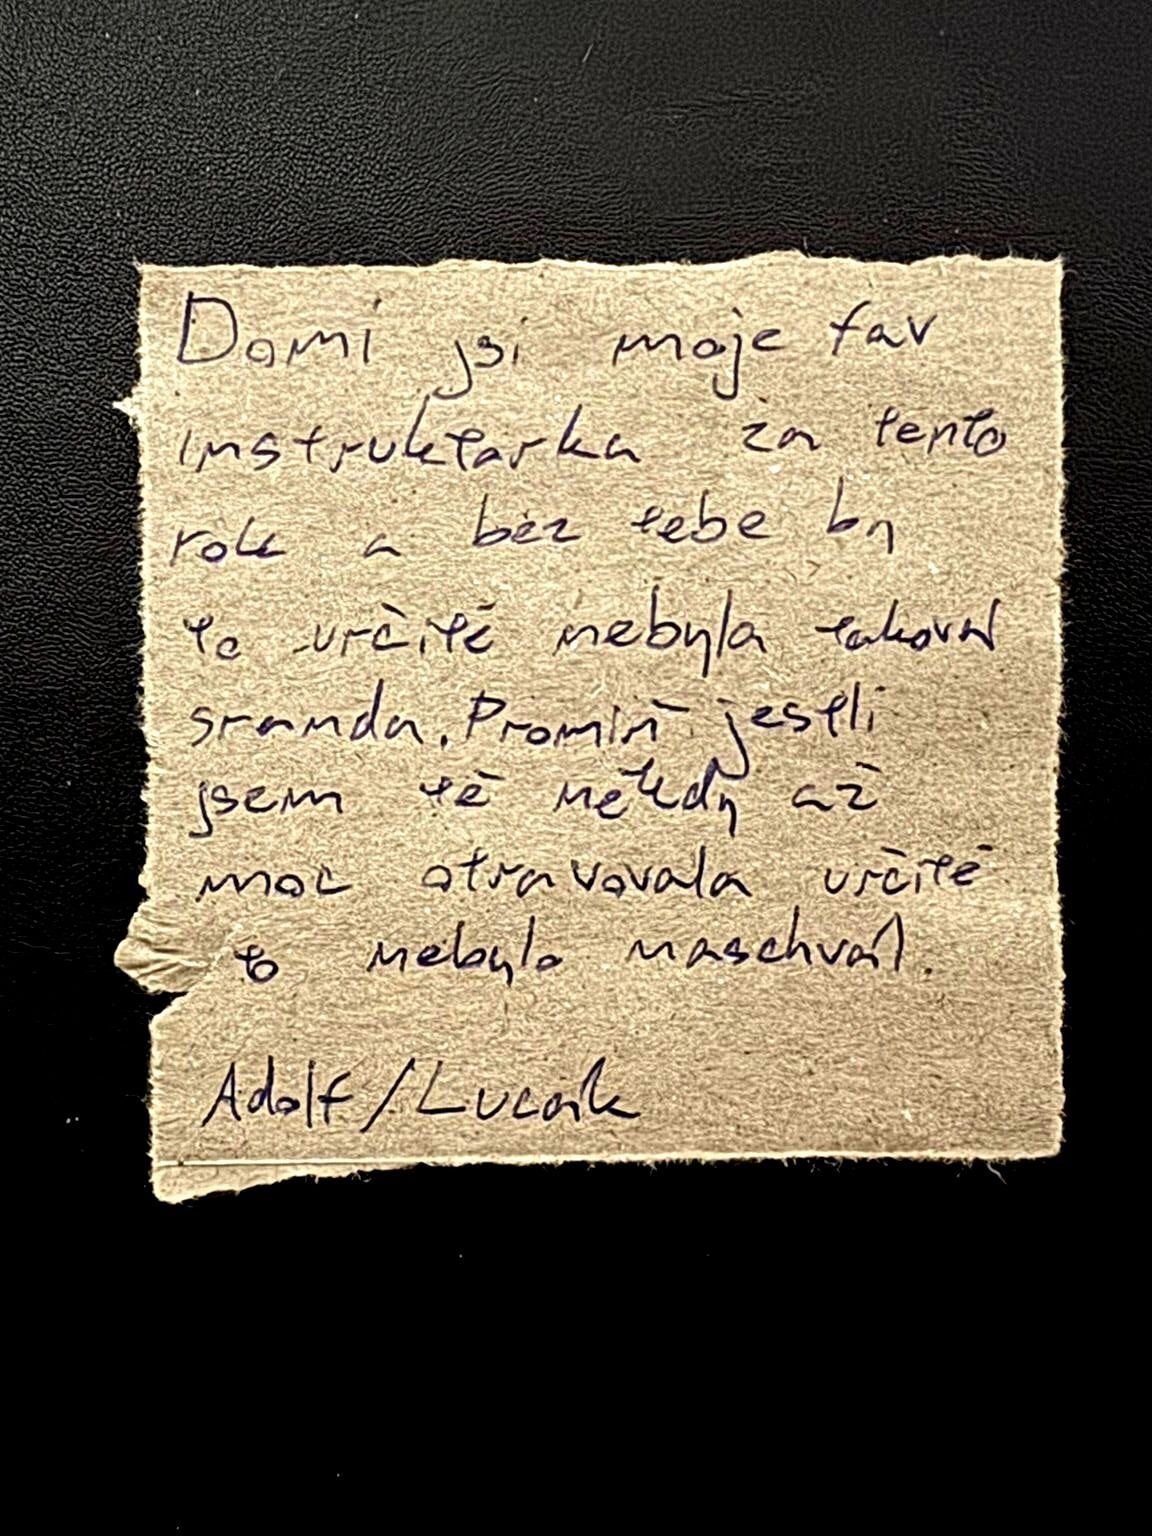 Domi jsi moje fav
instruktorka za tento
rok a bez tebe by
to určitě nebyla taková
sranda. Promiň jestli
jsem tě někdy až
moc otravovala určitě
to nebylo naschvál.
Adolf/Lucaik